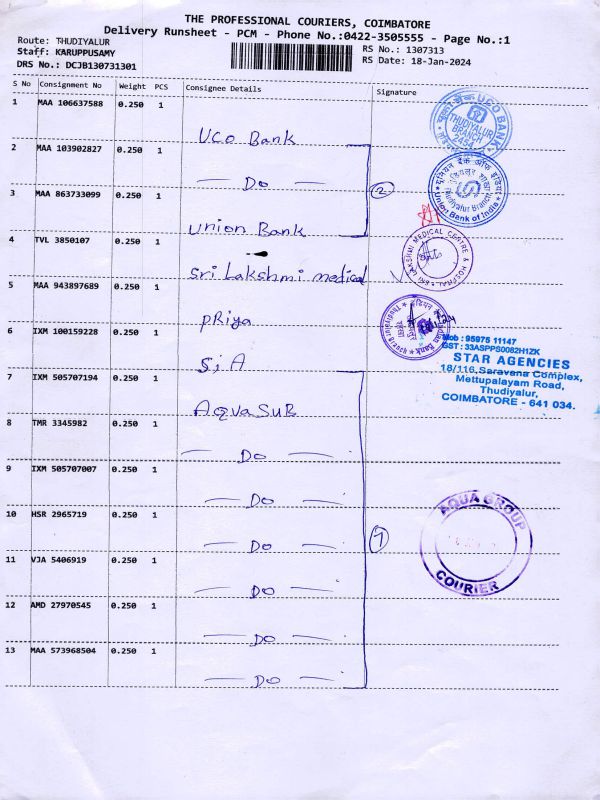 THE PROFESSIONAL COURIERS, COIMBATORE
Delivery Runsheet - PCM - Phone No.:0422-3505555 - Page No.:1
Route: THUDIYALUR
RS No.: 1307313
Staff: KARUPPUSAMY
RS Date: 18-Jan-2024
DRS No.: DCJB130731301
S No Consignment No Weight PCS Consignee Details Signature
1 MAA 106637588 0.250 1 UCO Bank
UCO BANK
THUDIYALUR
BRANCH
2434
2 MAA 103902827 0.250 1 — Do —
2
Thudiyalur Branch
Union Bank of India
3 MAA 863733099 0.250 1 Union Bank
4 TVL 3850107 0.250 1 Sri Lakshmi medical
SRI LAKSHMI MEDICAL CENTRE & HOSPITAL
5 MAA 943897689 0.250 1 PRiya
6 IXM 100159228 0.250 1 S,i A
Mob : 95975 11147
GST : 33ASPPS0082H1ZK
STAR AGENCIES
18/116, Saravana Complex,
Mettupalayam Road,
Thudiyalur,
COIMBATORE - 641 034.
7 IXM 505707194 0.250 1 AQVASUB
8 TMR 3345982 0.250 1 — Do —
9 IXM 505707007 0.250 1 — Do —
10 HSR 2965719 0.250 1 — Do —
7
AQUA GROUP
COURIER
11 VJA 5406919 0.250 1 — Do —
12 AMD 27970545 0.250 1 — Do —
13 MAA 573968504 0.250 1 — Do —